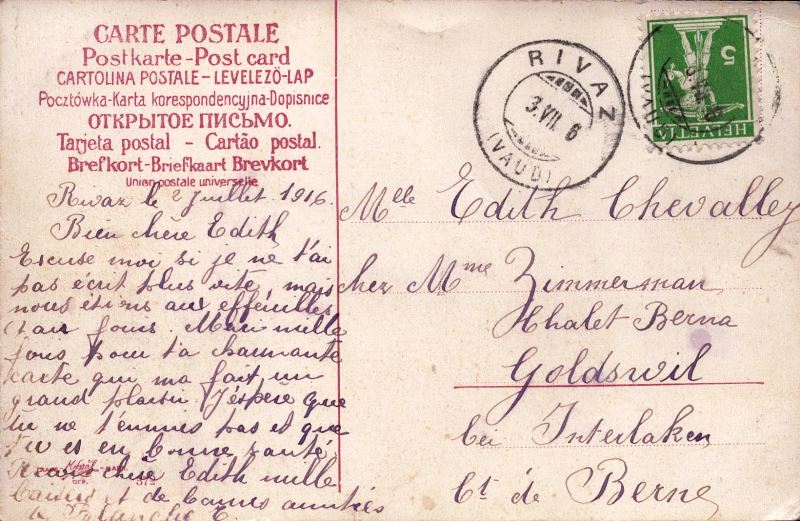 CARTE POSTALE
Postkarte - Post card
CARTOLINA POSTALE - LEVELEZŐ-LAP
Pocztówka - Karta korespondencyjna - Dopisnice
ОТКРЫТОЕ ПИСЬМО.
Tarjeta postal - Cartão postal.
Brefkort - Briefkaart Brevkort
Union postale universelle
Rivaz le 2 Juillet 1916.
Bien chère Edith
Excuse moi si je ne t'ai
pas écrit plus vite, mais
nous étions aux effeuilles
ces jours. Merci mille
fois pour ta charmante
carte qui ma fait un
grand plaisir J'espère que
tu ne t'ennuies pas et que
tu es en bonne santé.
chère Edith mille
baisers et de bonnes amitiés
de Blanche C.
RIVAZ
3.VII. 6
(VAUD)
5
HELVETIA
Mlle Edith Chevalley
chez Mme Zimmerman
Chalet Berna
Goldswil
bei Interlaken
Ct. de Berne